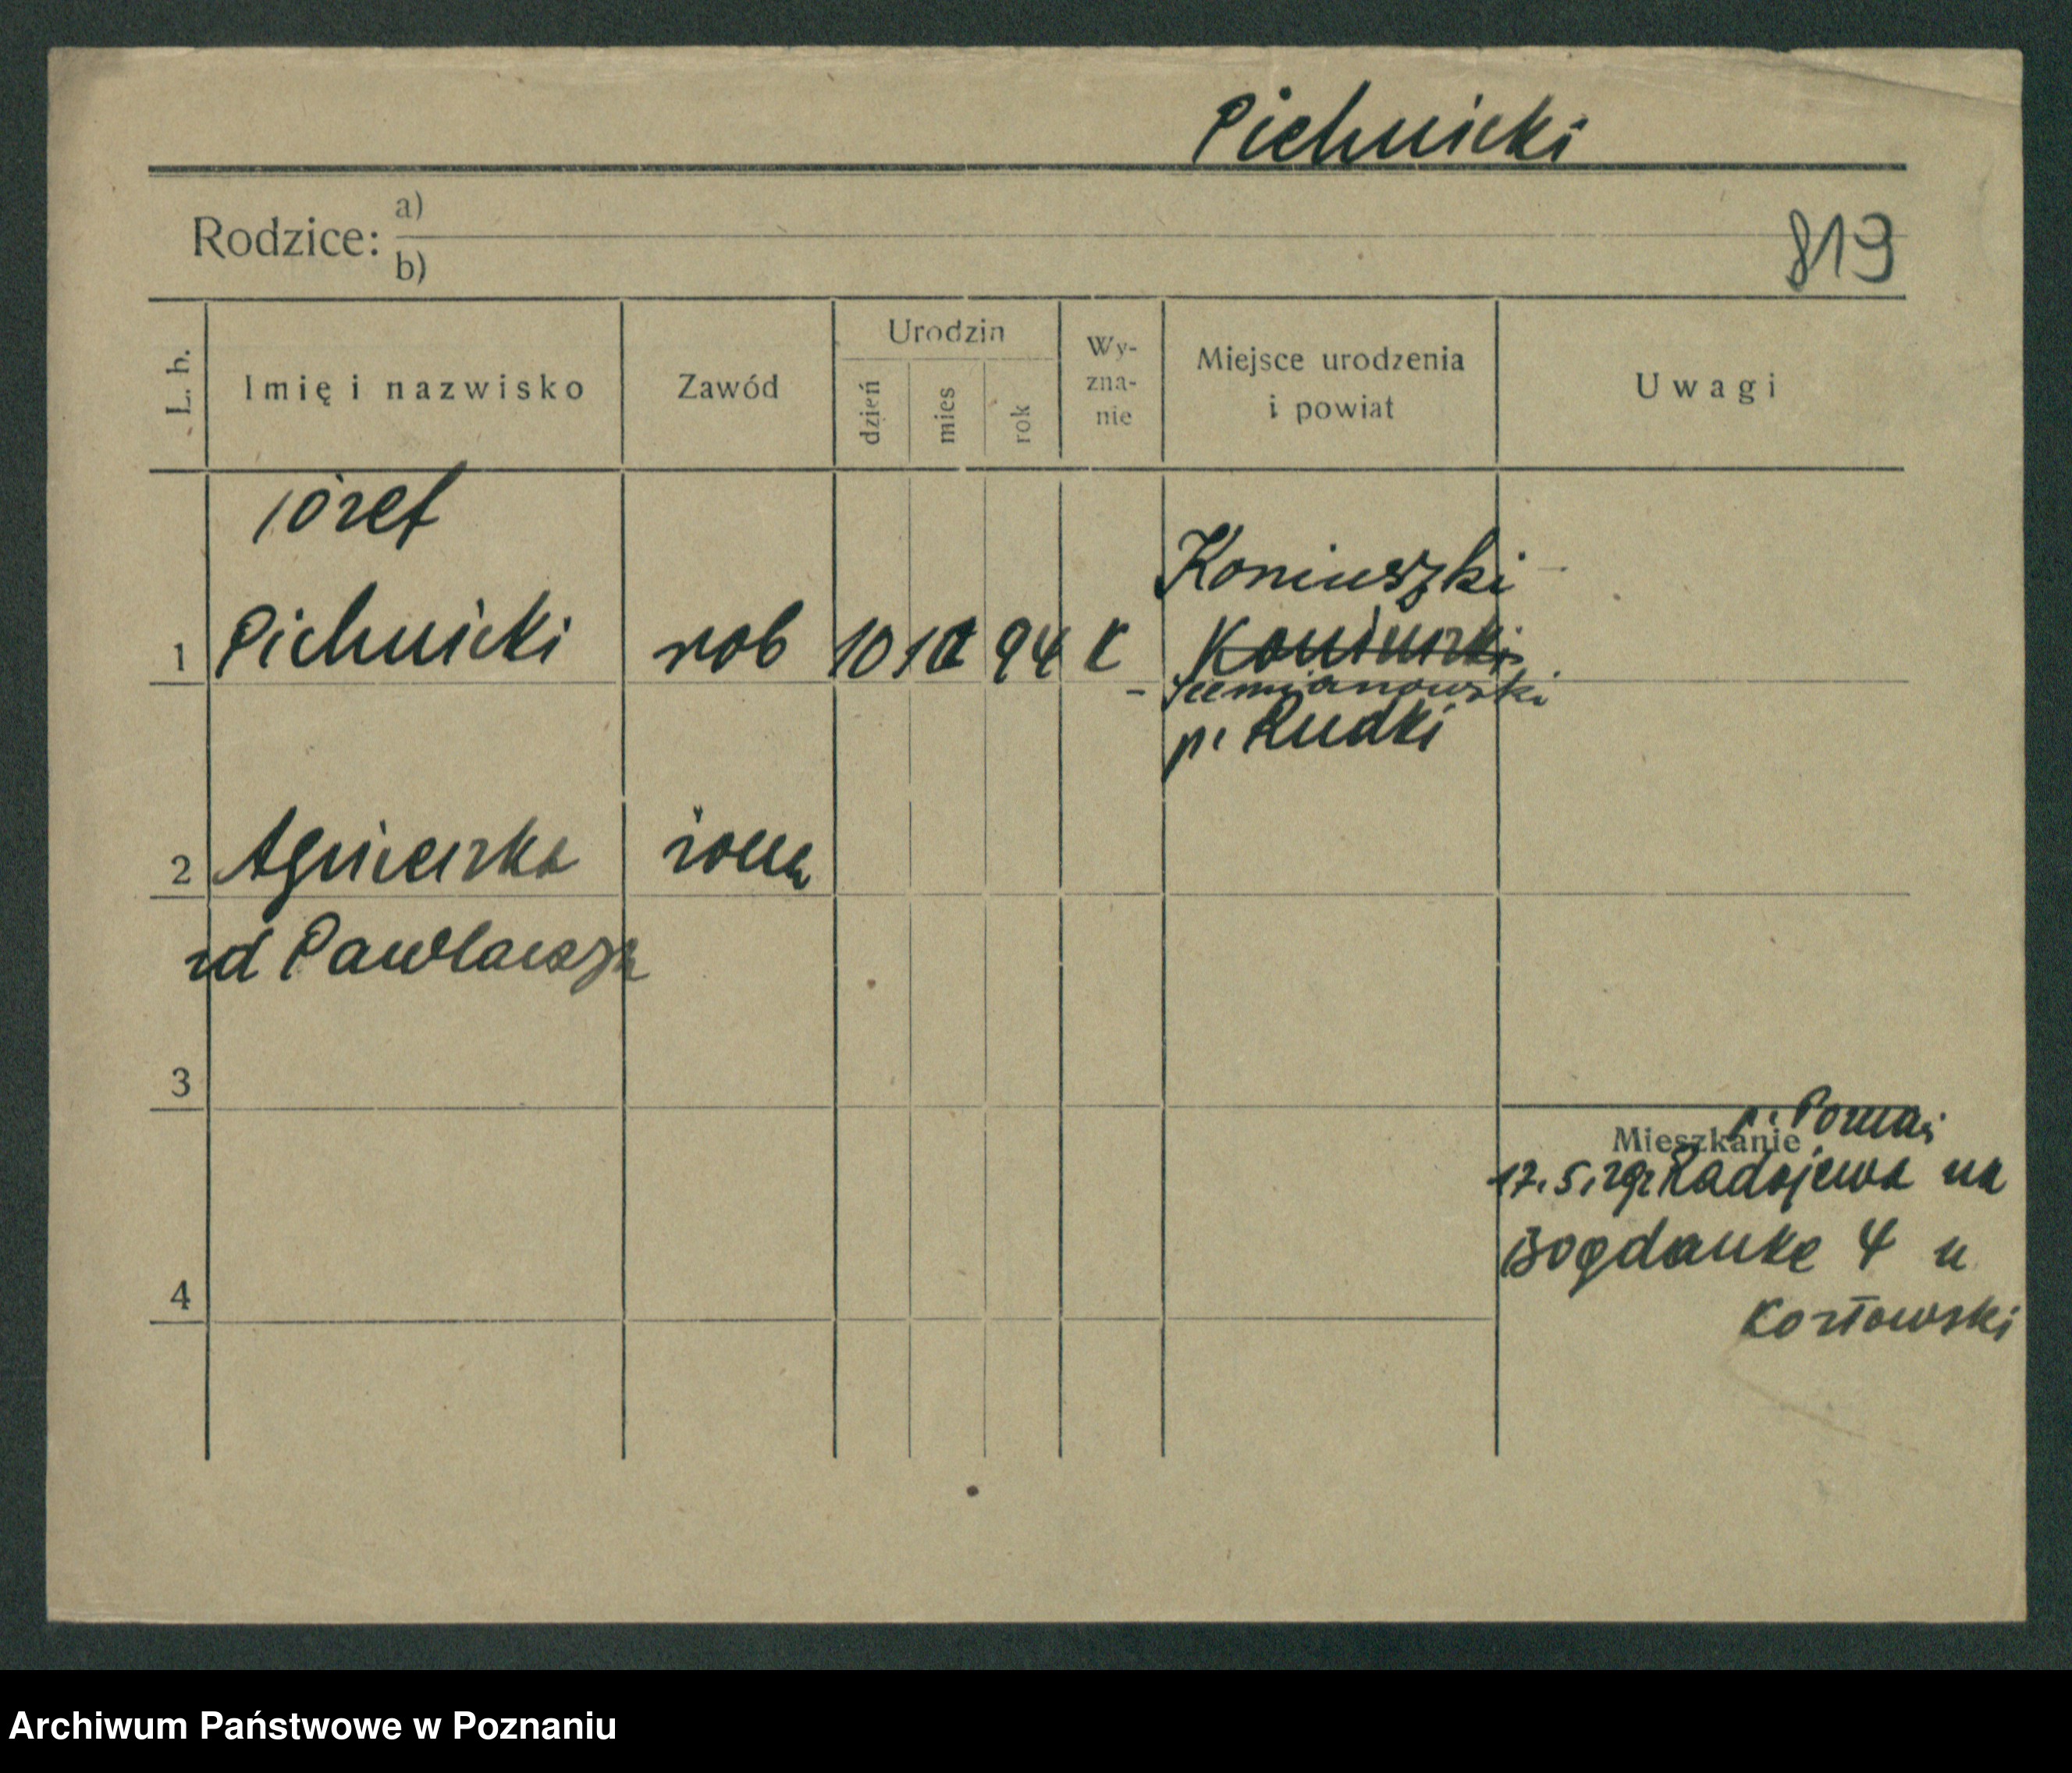 Pichnicki
Rodzice: a)
b)
819
L. b.
Imię i nazwisko
Zawód
Urodzin
dzień
mies
rok
Wy-
zna-
nie
Miejsce urodzenia
i powiat
Uwagi
Józef
1 Pichnicki rob 10 94 K
Koniuszki
Koniuszki
- Siemianowski
p. Rudki
2 Agnieszka żona
zd
3
p. Poznań
Mieszkanie
17.5.29 z Radojewa na
Bogdankę 4 u
Kozłowski
4
Archiwum Państwowe w Poznaniu